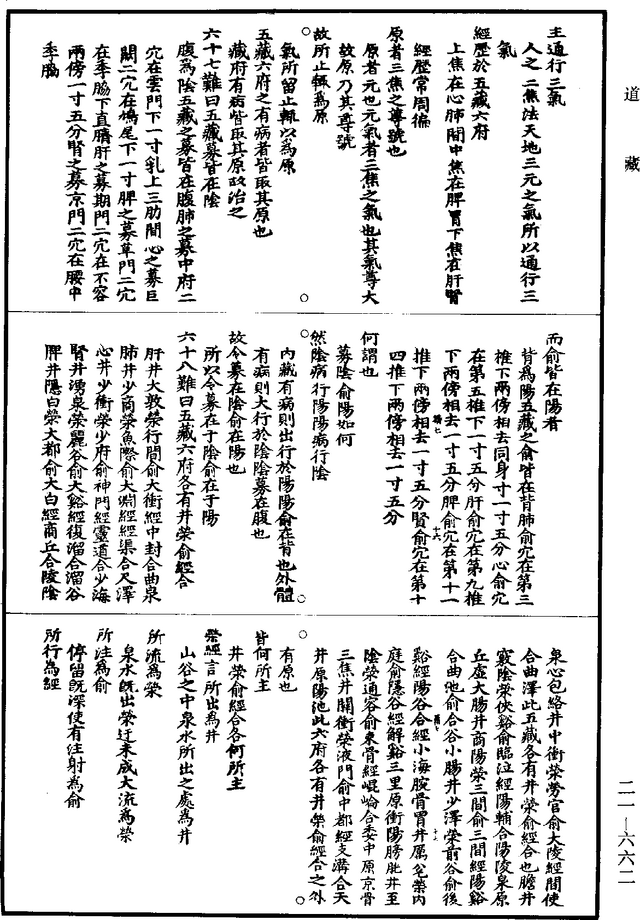 道藏
主通行三氣
人之三焦法天地三元之氣所以通行三
氣
經歷於五藏六府
上焦在心肺間中焦在脾胃下焦在肝腎
經歷常周徧
原者三焦之尊號也
原者元也元氣者三焦之氣也其氣尊大
故原乃其尊號
故所止輒為原
氣所留止輒以為原
五藏六府之有病者皆取其原也
藏府有病皆取其原故治之
六十七難曰五藏募皆在陰
腹為陰五藏之募皆在腹肺之募中府二
穴在雲門下一寸乳上三肋間心之募巨
闕二穴在鳩尾下一寸脾之募草門二穴
在季脇下直臍肝之募期門二穴在不容
兩傍一寸五分腎之募京門二穴在腰中
季脇
而俞皆在陽者
背為陽五藏之俞皆在背肺俞穴在第三
椎下兩傍相去同身寸一寸五分心俞穴
在第五椎下一寸五分肝俞穴在第九椎
下兩傍相去一寸五分脾俞穴在第十一
椎下兩傍相去一寸五分腎俞穴在第十
四椎下兩傍相去一寸五分
何謂也
募陰俞陽如何
然陰病行陽陽病行陰
內藏有病則出行於陽陽俞在背也外體
有病則入行於陰陰募在腹也
故令募在陰俞在陽也
所以令募在于陰俞在于陽
六十八難曰五藏六府各有井榮俞經合
肝井大敦榮行間俞大衝經中封合曲泉
肺井少商榮魚際俞大淵經經渠合尺澤
心井少衝榮少府俞神門經靈道合少海
腎井湧泉榮麗谷俞大谿經復溜合溜谷
脾井隱白榮大都俞大白經商丘合陵陰
泉心包絡井中衝榮勞宮俞大陵經間使
合曲澤此五藏各有井榮俞經合也膽井
竅陰榮俠谿俞臨泣經陽輔合陽陵泉原
丘虛大腸井商陽榮三間俞三間經陽谿
合曲池俞合谷小腸井少澤榮前谷俞後
谿經陽谷合經小海腕骨胃井厲兌榮內
庭俞隱谷經解谿三里原衝陽膀胱井至
陰榮通谷俞束骨經崐崘合委中原京骨
三焦井關衝榮液門俞中都經支溝合天
井原陽池此六府各有井榮俞經合之外
有原也
皆何所主
井榮俞經合各何所主
榮經言所出為井
山谷之中泉水所出之處為井
所流為榮
泉水既出榮迂未成大流為榮
所注為俞
停留既深便有注射為俞
所行為經
二一—六六二